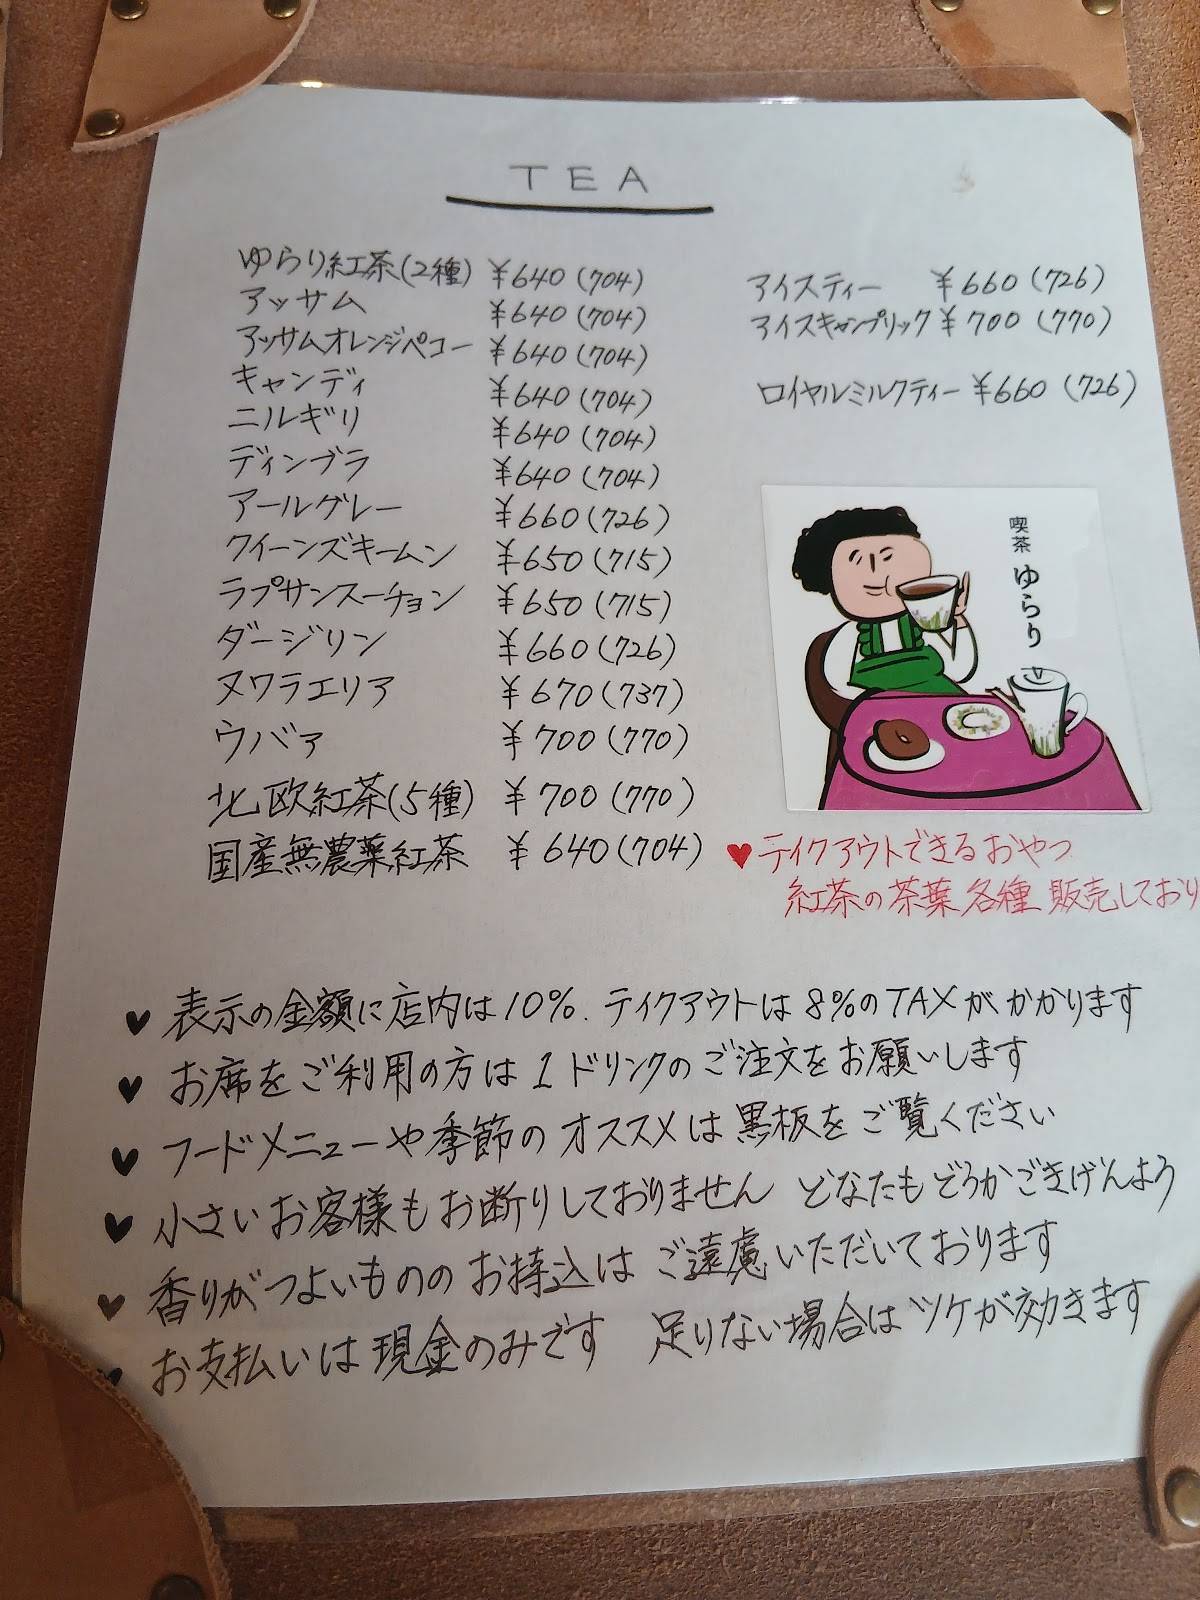 TEA
ゆらり紅茶(2種) ¥640(704)
アッサム ¥640(704)
アッサムオレンジペコー ¥640(704)
キャンディ ¥640(704)
ニルギリ ¥640(704)
ディンブラ ¥640(704)
アールグレー ¥660(726)
クイーンズキームン ¥650(715)
ラプサンスーチョン ¥650(715)
ダージリン ¥660(726)
ヌワラエリア ¥670(737)
ウバァ ¥700(770)
北欧紅茶(5種) ¥700(770)
国産無農薬紅茶 ¥640(704)
アイスティー ¥660(726)
アイスキャンブリック ¥700(770)
ロイヤルミルクティー ¥660(726)
喫茶 ゆらり
♥ テイクアウトできるおやつ
紅茶の茶葉各種販売しており
♥ 表示の金額に店内は10%、テイクアウトは8%のTAXがかかります
♥ お席をご利用の方は1ドリンクのご注文をお願いします
♥ フードメニューや季節のオススメは黒板をご覧ください
♥ 小さいお客様もお断りしておりません どなたもどうかごきげんよう
♥ 香りがつよいもののお持込はご遠慮いただいております
♥ お支払いは現金のみです 足りない場合はツケが効きます